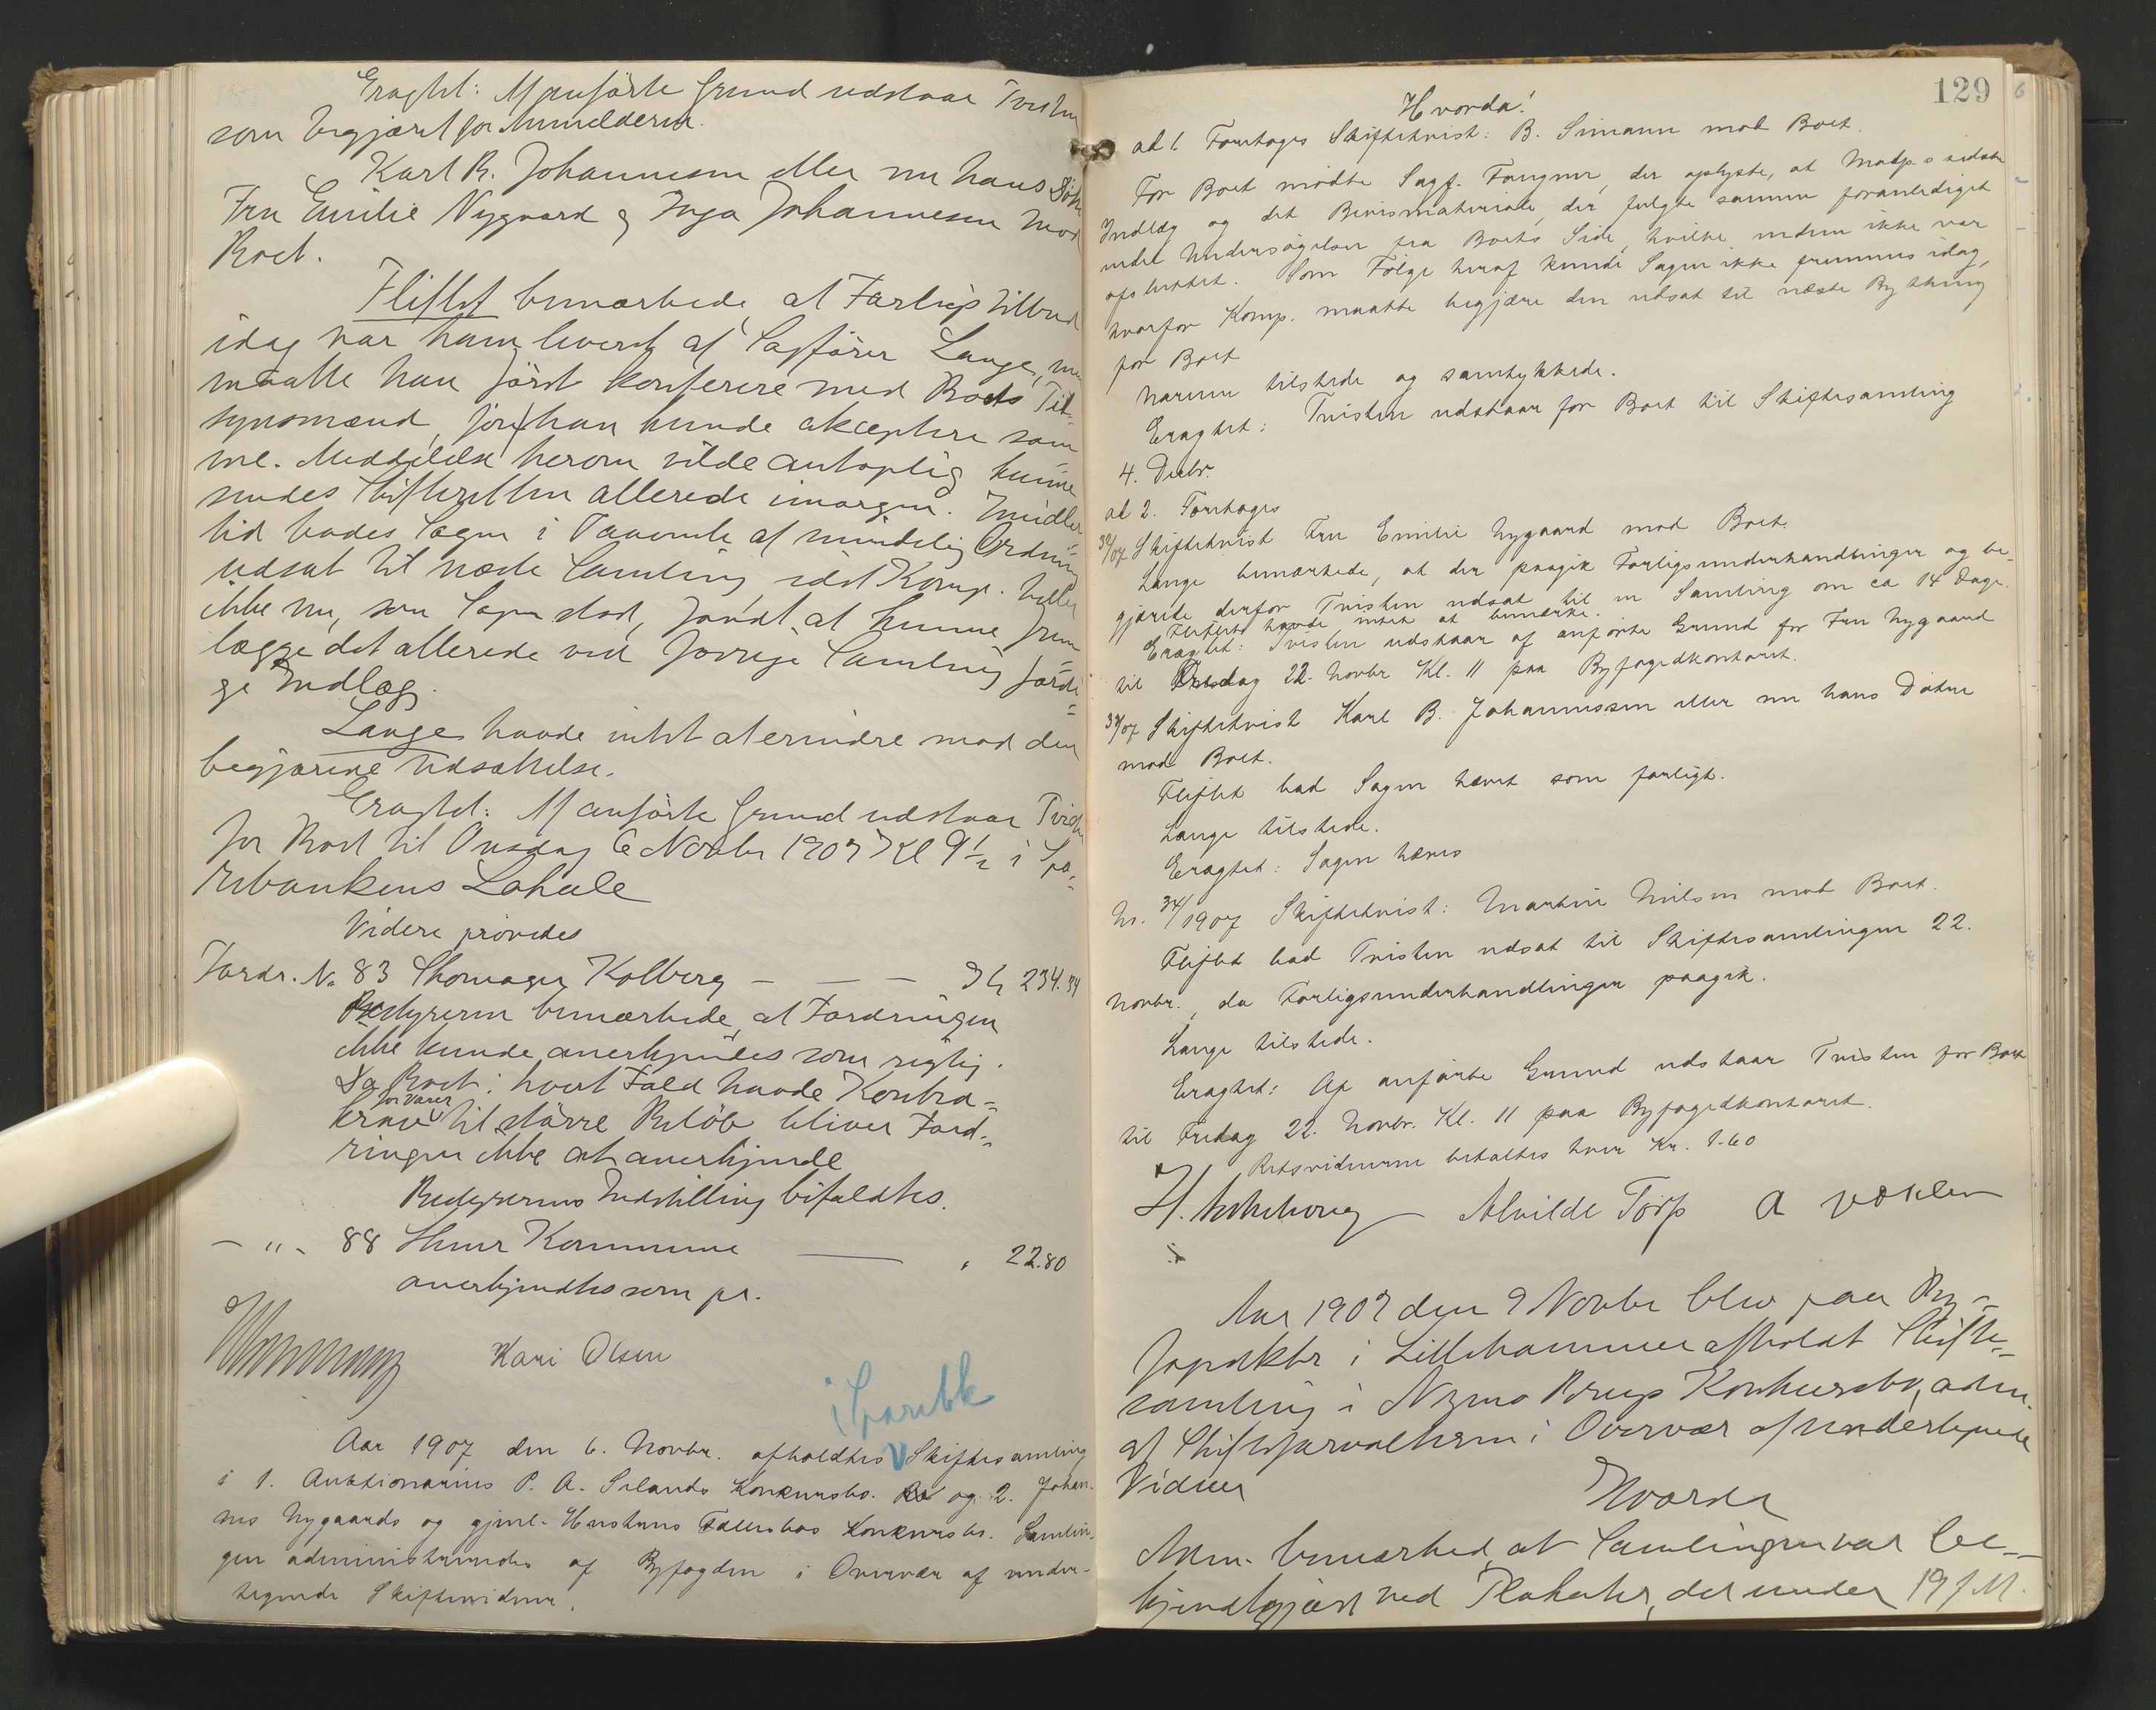 Eragtet: Af anførte Grund udstaar Tvisten
som begjært for Anmelderen.
Karl B. Johannesen eller nu hans Døtre
Fru Emilie Nygaard og Inga Johannesen mod
Boet.
Fliflet bemærkede, at Forligs tilbud
idag var ham leveret af Sagfører Lange, men
maatte han først konferere med Boets Til-
synsmænd, før han kunde akceptere sam
me. Meddelelse herom vilde antagelig kunne
sendes Skifteretten allerede imorgen. Imidler
tid bades Sagen i Paavente af mindelig Ordning
udsat til næste Samling idet Komp. heller
ikke nu, som Sagen stod, fandt at kunne frem
lægge det allerede ved forrige Samling færdi-
ge Indlæg.
Lange havde intet at erindre mod den
begjærede Udsættelse.
Eragtet: Af anførte Grund udstaar Tvisten
for Boet til Onsdag 6 Novbr 1907 Kl 9½ i Spa-
rebankens Lokale
Videre prøvedes
Fordr. No 83 Skomager Kolberg — — — Kr 234.34
Bestyreren bemærkede, at Fordringen
ikke kunde anerkjendes som rigtig.
Da Boet i hvert Fald havde Kontra-
krav for Varer til større Beløb bliver Ford-
ringen ikke at anerkjende
Bestyrerens Indstilling bifaldtes.
- " - 88 Kommune — " 22.80
anerkjendtes som pr.
Kari Olsen
i Sparebk
Aar 1907 den 6. Novbr. afholdtes V Skiftesamling
i 1. Auktionarius P. A. Selands Konkursbo. og 2. Johan-
nes Nygaards og gjenl. Hustrus Fællesbos Konkursbo. Samlin-
gen administreredes af Byfogden i Overvær af under-
tegnede Skiftevidner.
129
Hvorda!
ad 1. Foretoges Skiftetvist: B. Simann mod Boet.
For Boet mødte Sagf. Fougner, der oplyste, at Modp.s sidste
Indlæg og det Bevismateriale, der fulgte samme foranlediget
endel Undersøgelser fra Boets Side, hvilke endnu ikke var
afsluttet. Som Følge heraf kunde Sagen ikke fremmes idag,
hvorfor Komp. maatte begjære den udsat til næste Bything
for Boet
Narum tilstede og samtykkede.
Eragtet: Tvisten udstaar for Boet til Skiftesamling
4. Decbr.
ad 2. Foretoges
32/07 Skiftetvist Fru Emilie Nygaard mod Boet.
Lange bemærkede, at der paagik Forligsunderhandlinger og be-
gjærede derfor Tvisten udsat til en Samling om ca 14 Dage.
Fliflet havde intet at bemærke.
Eragtet: Tvisten udstaar af anførte Grund for Fru Nygaard
til Fredag 22. Novbr Kl. 11 paa Byfogedkontoret.
33/07 Skiftetvist Karl B. Johannessen eller nu hans Døtre
mod Boet.
Fliflet bad Sagen hævet som forligt.
Lange tilstede.
Eragtet: Sagen hæves
Nr. 34/1907 Skiftetvist: Martin Nilsen mod Boet.
Fliflet bad Tvisten udsat til Skiftesamlingen 22.
Novbr., da Forligsunderhandlinger paagik.
Lange tilstede.
Eragtet: Af anførte Grund udstaar Tvisten for Boet
til Fredag 22. Novbr. Kl. 11 paa Byfogedkontoret.
Retsvidnerne betaltes hver Kr. 1.60
Alvilde Torp
Aar 1907 den 9 Novbr blev paa By-
fogedktr i Lillehammer afholdt Skifte-
samling i Konkursbo, adm.
af Skifteforvalteren i Overvær af undertegnede
Vidner
Hvorda
Adm. bemærked at Samlingen var be-
kjendtgjort ved Plakater, det under 19 f. M.